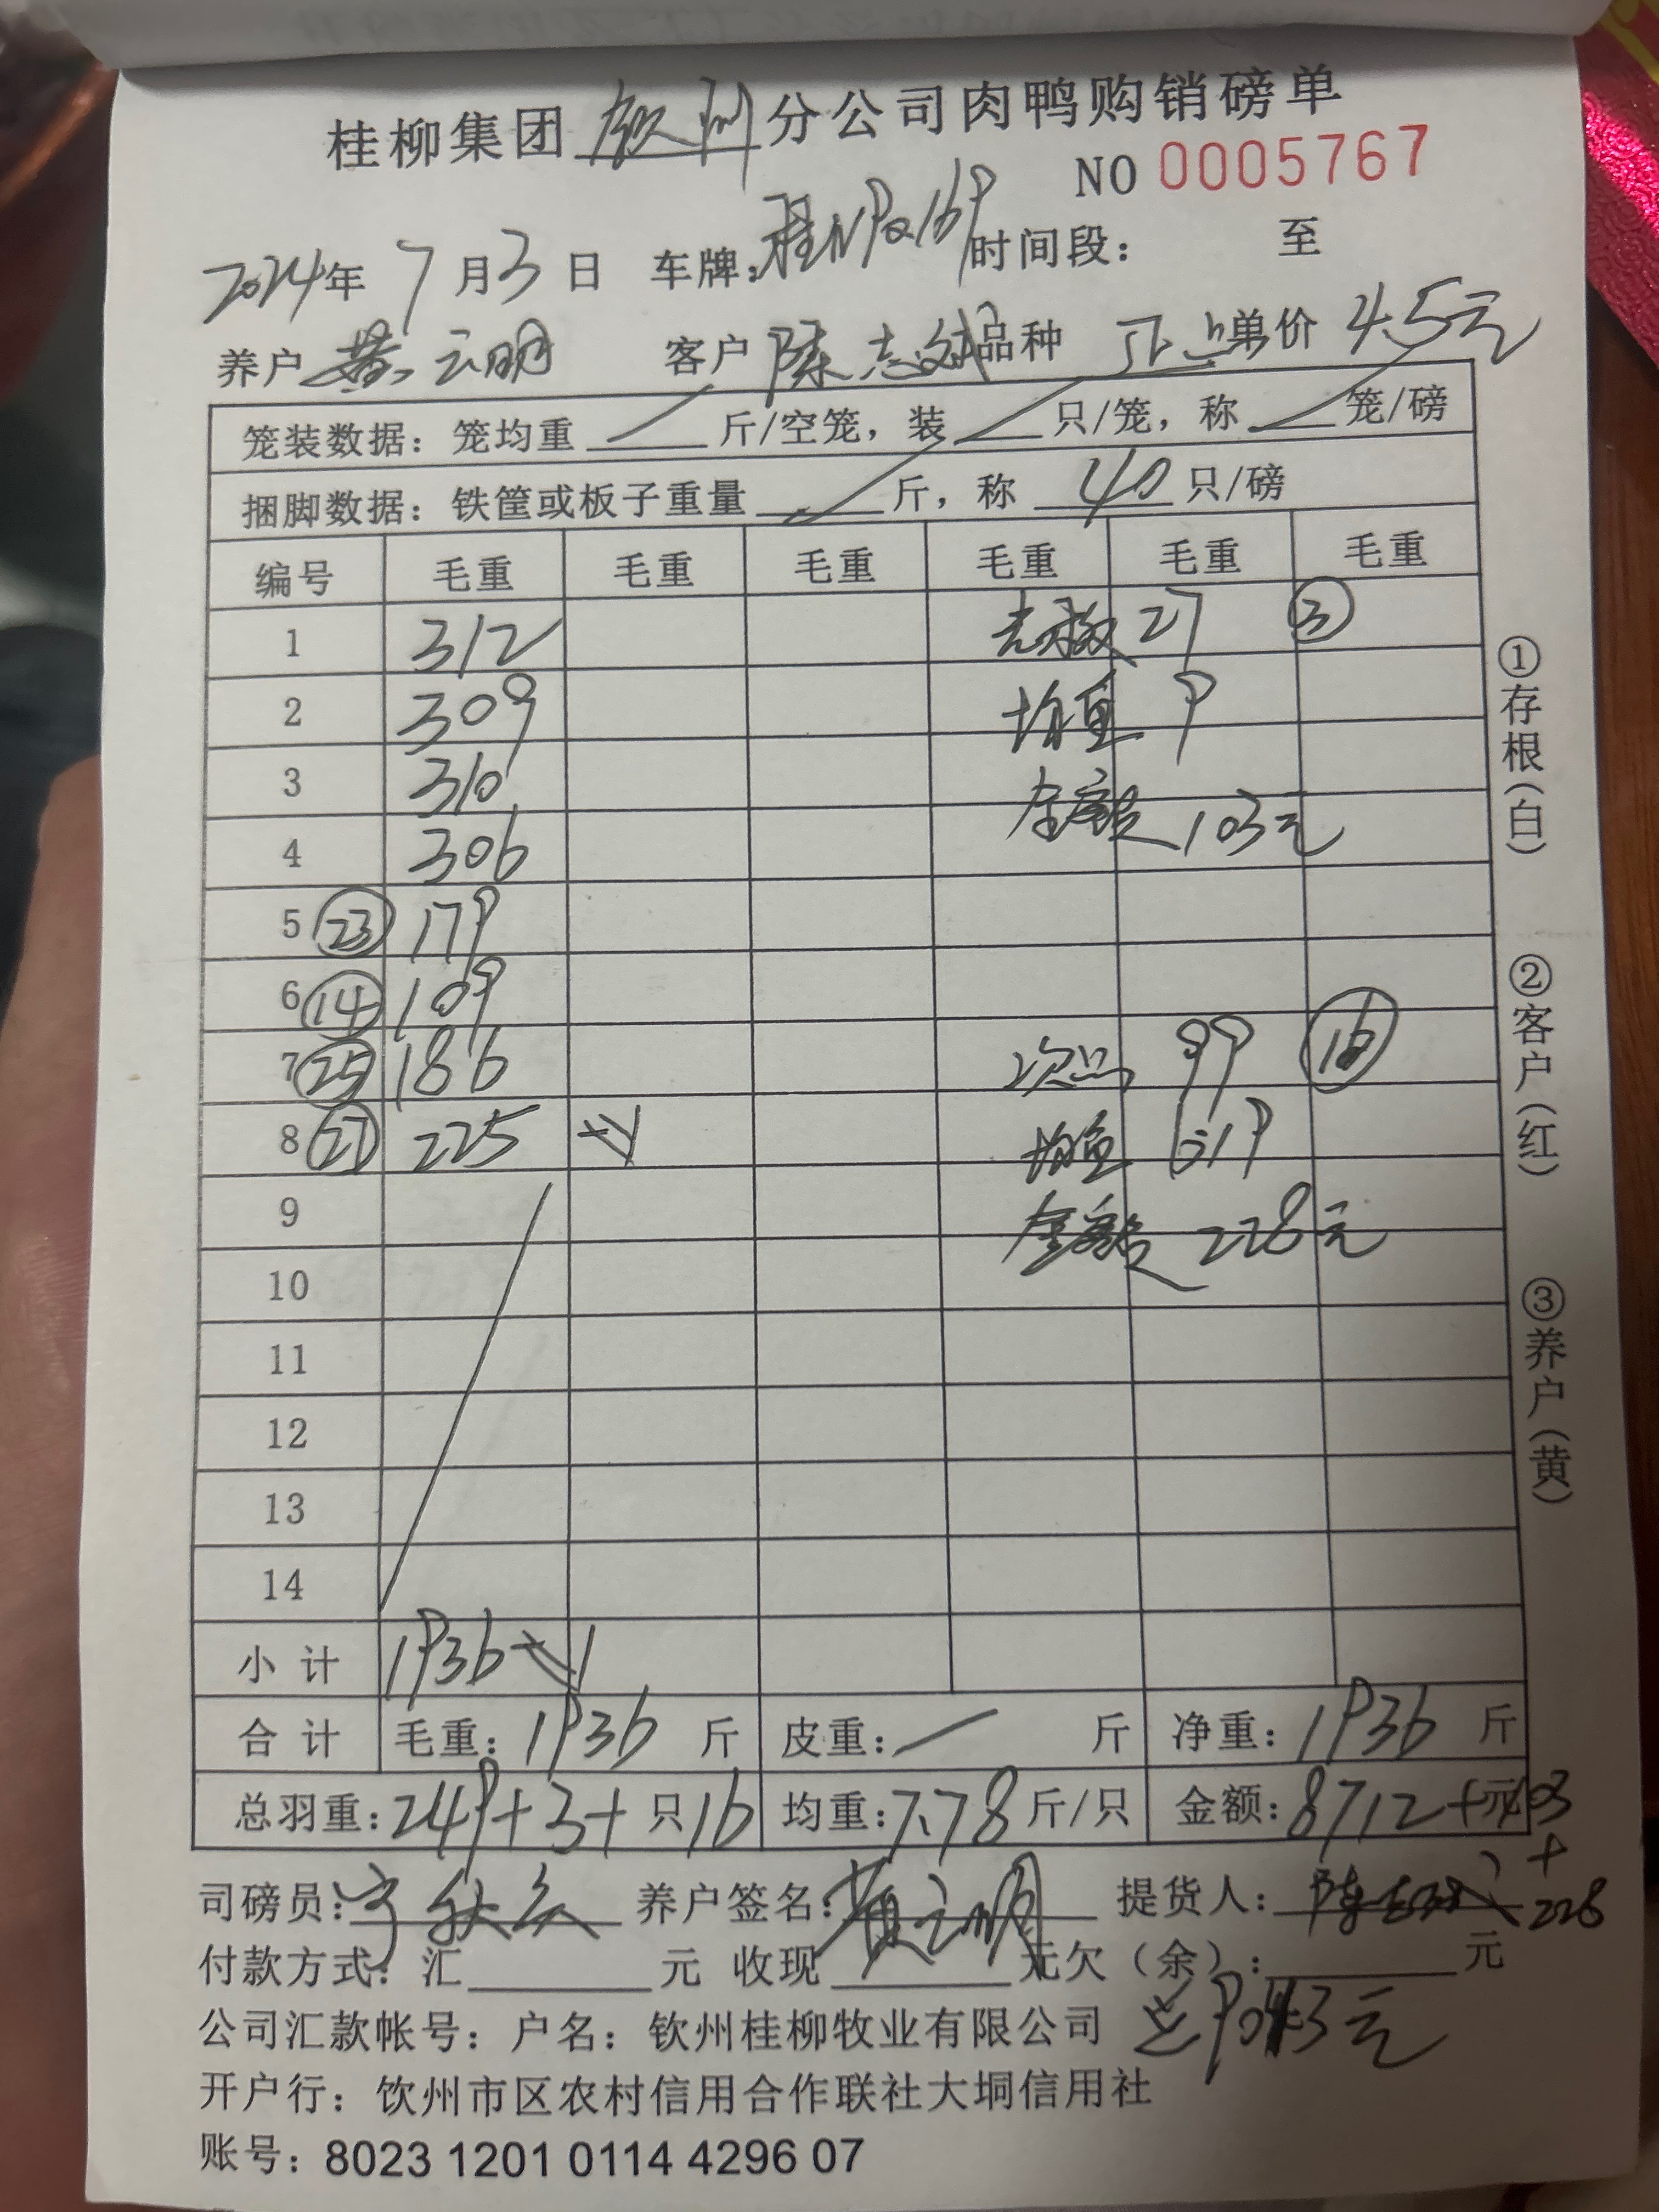 桂柳集团 钦州 分公司肉鸭购销磅单
NO 0005767
2024年 7月3日 车牌: 桂NP 时间段: 至
养户 黄云明 客户 陈志斌 品种 单价 4.5元
笼装数据: 笼均重 斤/空笼, 装 只/笼, 称 笼/磅
捆脚数据: 铁筐或板子重量 斤, 称 40 只/磅
编号 毛重 毛重 毛重 毛重 毛重 毛重
1 312 27 ③
2 309 均重 9
3 310 金额 103元
4 306
5 ㉓ 179
6 ⑭ 109
7 ㉕ 186 次品 99 ⑯
8 ㉗ 225 均重 6.19
9 金额 228元
10
11
12
13
14
小计 1936
合计 毛重: 1936 斤 皮重: 斤 净重: 1936 斤
总羽重: 249+3+ 只 16 均重: 7.78 斤/只 金额: 8712+元103
+
228
司磅员: 宁秋 养户签名: 黄云明 提货人: 陈志斌
付款方式: 汇 元 收现 元欠(余): 元
公司汇款帐号: 户名: 钦州桂柳牧业有限公司 总9043元
开户行: 钦州市区农村信用合作联社大垌信用社
账号: 8023 1201 0114 4296 07
①存根(白)
②客户(红)
③养户(黄)